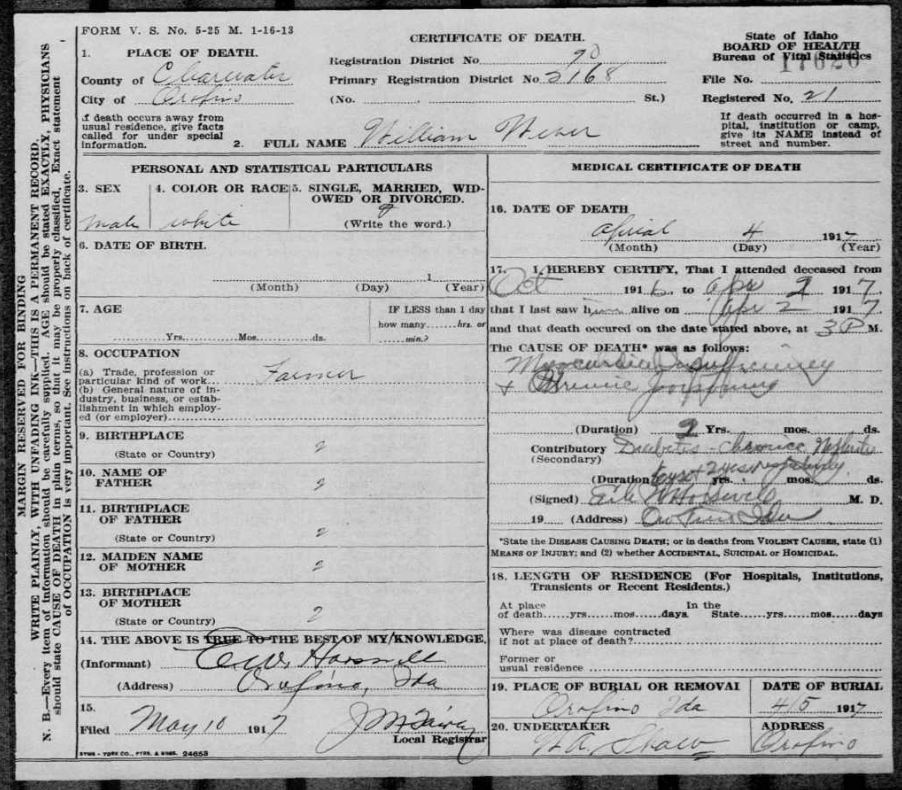 FORM V. S. No. 5-25 M. 1-16-13
CERTIFICATE OF DEATH.
State of Idaho
BOARD OF HEALTH
Bureau of Vital Statistics
1. PLACE OF DEATH.
County of Clearwater
City of Orofino
Registration District No 90
Primary Registration District No. 3168
(No. St.)
File No.
Registered No. 21
if death occurs away from
usual residence, give facts
called for under special
information.
2. FULL NAME William Weber
If death occurred in a hos-
pital, institution or camp,
give its NAME instead of
street and number.
PERSONAL AND STATISTICAL PARTICULARS
3. SEX
male
4. COLOR OR RACE
white
5. SINGLE, MARRIED, WID-
OWED OR DIVORCED.
(Write the word.)
6. DATE OF BIRTH.
1
(Month) (Day) (Year)
7. AGE
Yrs. Mos. ds.
IF LESS than 1 day
how many hrs. or
min.?
8. OCCUPATION
(a) Trade, profession or
particular kind of work Farmer
(b) General nature of in-
dustry, business, or estab-
lishment in which employ-
ed (or employer)
9. BIRTHPLACE
(State or Country) ?
10. NAME OF
FATHER ?
11. BIRTHPLACE
OF FATHER
(State or Country) ?
12. MAIDEN NAME
OF MOTHER ?
13. BIRTHPLACE
OF MOTHER
(State or Country) ?
14. THE ABOVE IS TRUE TO THE BEST OF MY KNOWLEDGE.
(Informant)
(Address) Orofino, Ida
15.
Filed May 10 1917
Local Registrar
SYMS - YORK CO., PTRS. & BNDS. 24653
MEDICAL CERTIFICATE OF DEATH
16. DATE OF DEATH
4 1917
(Month) (Day) (Year)
17. I HEREBY CERTIFY, That I attended deceased from
Oct 1916, to Apr 2 1917.
that I last saw him alive on Apr 2 1917
and that death occured on the date stated above, at 3 P M.
The CAUSE OF DEATH* was as follows:
(Duration) 2 Yrs. mos. ds.
Contributory Diabetes
(Secondary)
(Duration yrs. mos. ds.
(Signed) M. D.
19 (Address) Ida
*State the DISEASE CAUSING DEATH; or in deaths from VIOLENT CAUSES, state (1)
MEANS OF INJURY; and (2) whether ACCIDENTAL, SUICIDAL or HOMICIDAL.
18. LENGTH OF RESIDENCE (For Hospitals, Institutions,
Transients or Recent Residents.)
At place In the
of death yrs. mos. days State yrs. mos. days
Where was disease contracted
if not at place of death?
Former or
usual residence
19. PLACE OF BURIAL OR REMOVAL
Orofino Ida
DATE OF BURIAL
4/5 1917
20. UNDERTAKER
Shaw
ADDRESS
Orofino
MARGIN RESERVED FOR BINDING
WRITE PLAINLY, WITH UNFADING INK—THIS IS A PERMANENT RECORD.
N. B.—Every item of information should be carefully supplied. AGE should be stated EXACTLY, PHYSICIANS
should state CAUSE OF DEATH in plain terms, so that it may be properly classified, Exact statement
of OCCUPATION is very important. See instructions on back of certificate.